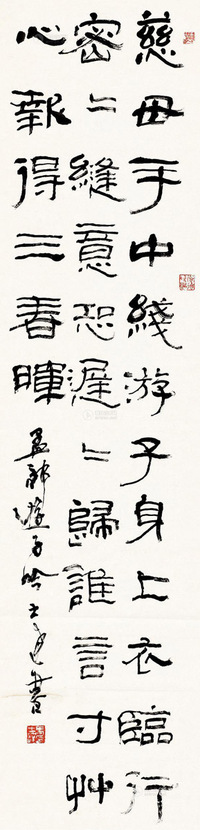 慈母手中綫游子身上衣臨行
密〻縫意恐遲〻歸誰言寸艸
心報得三春暉
孟郊遊子吟 書